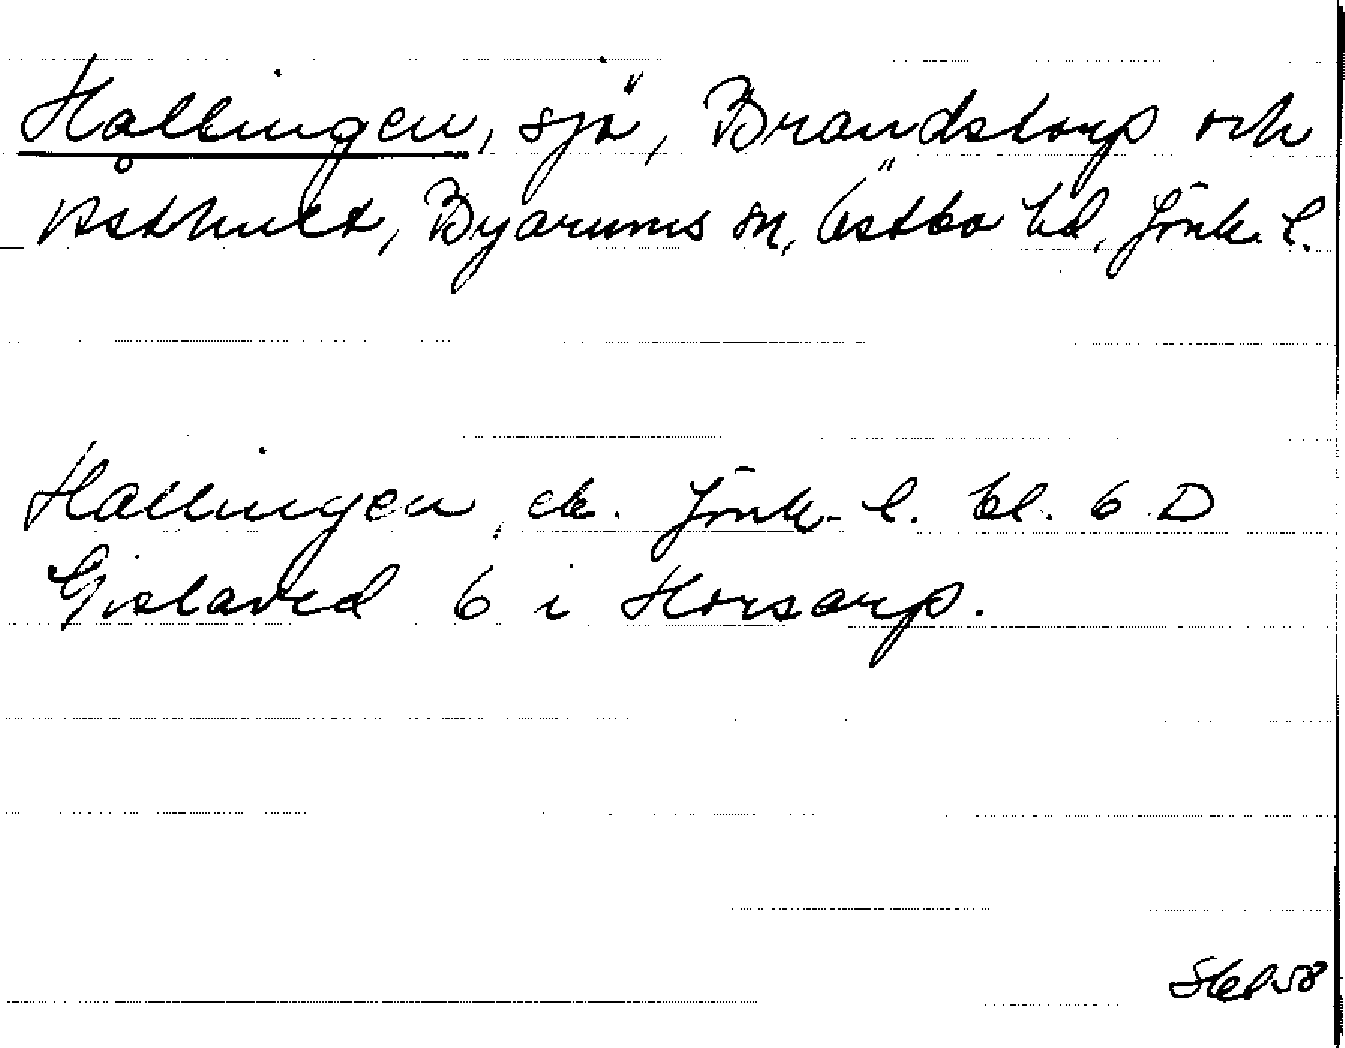 Hallingen, sjö, Brandstorp och
Byarums sn, Östbo hd, Jönk. l.
Hallingen, ek. Jönk. l. bl. 6 D
Gislaved 6 i Horsarp.